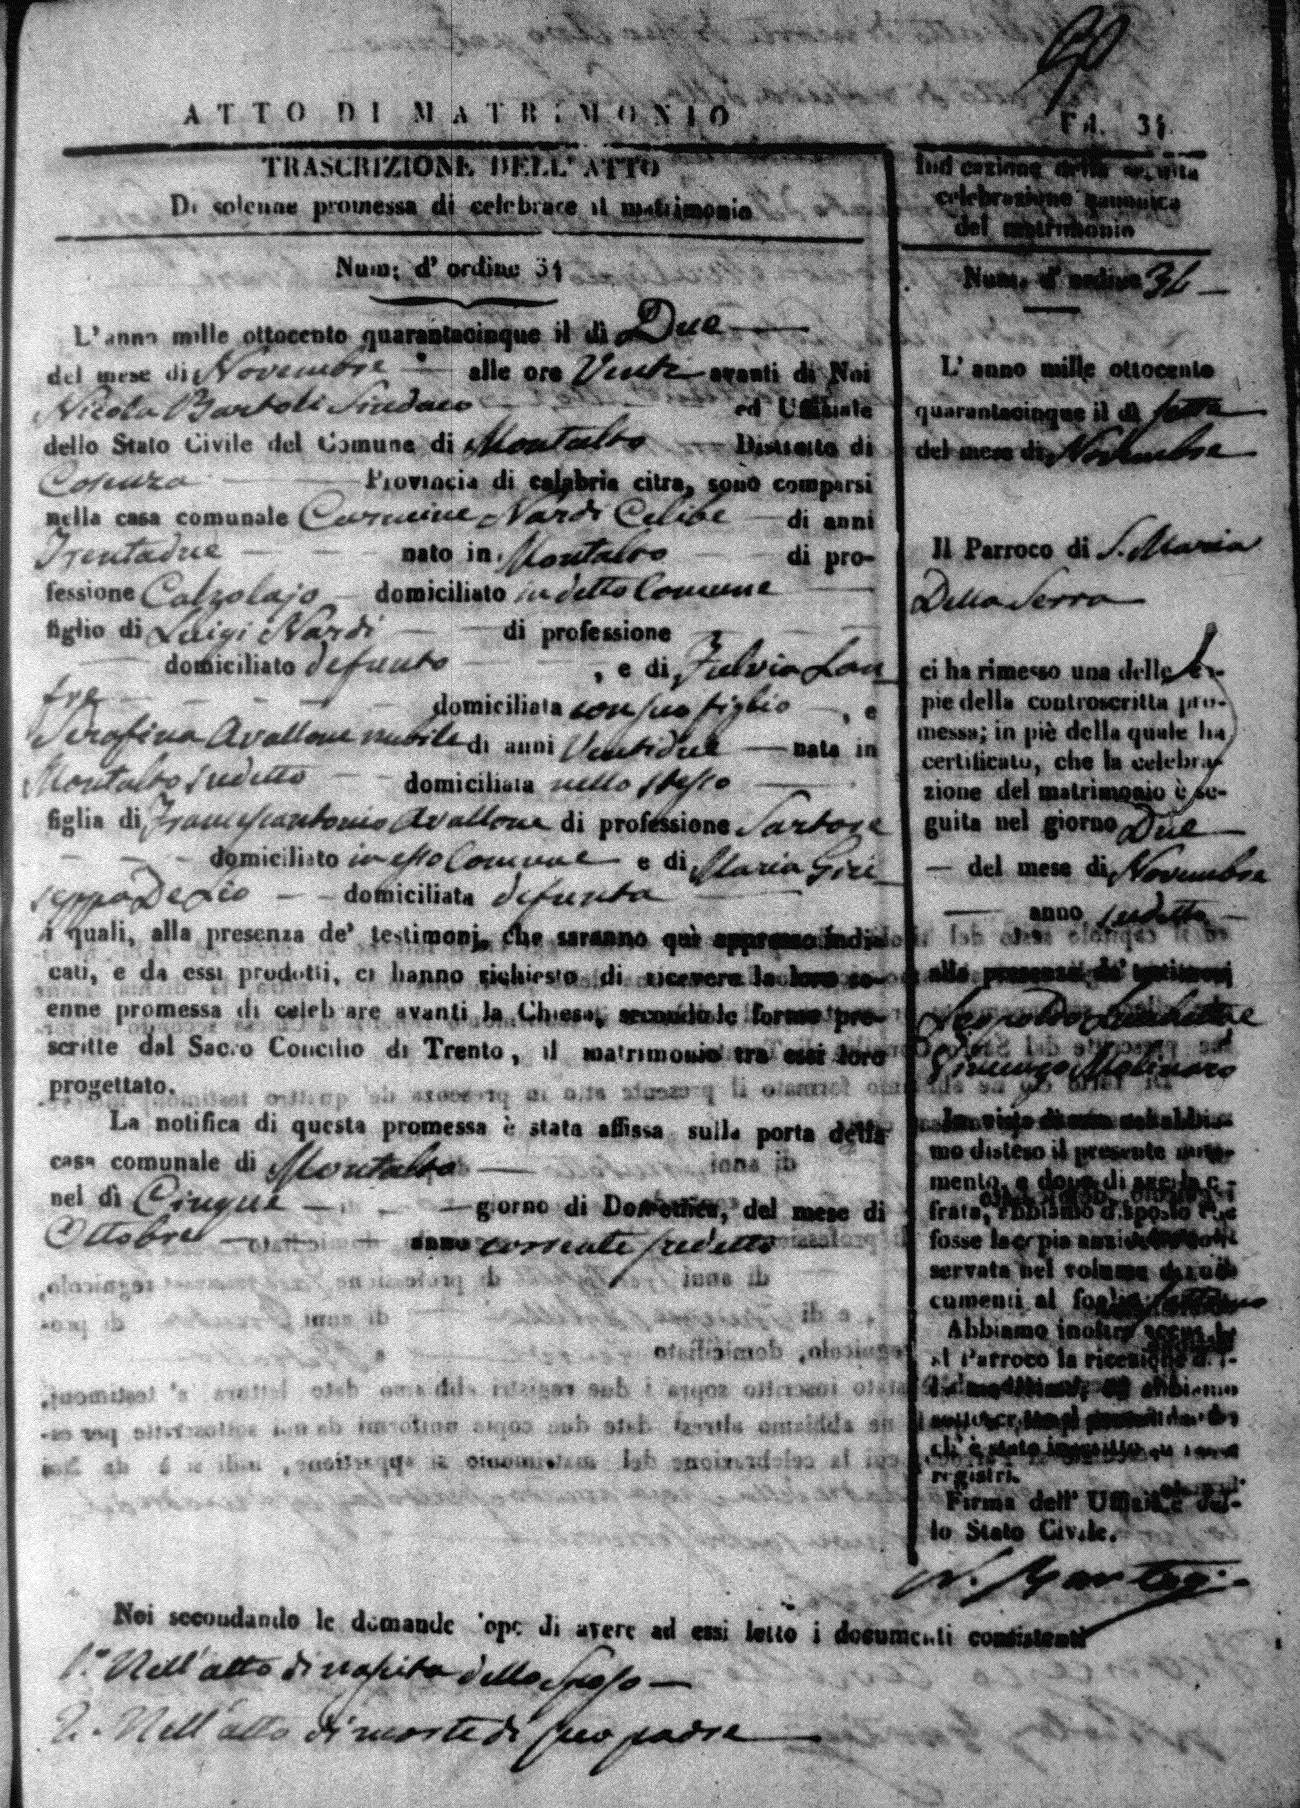 90
ATTO DI MATRIMONIO
Fol. 34
TRASCRIZIONE DELL' ATTO
Di solenne promessa di celebrare il matrimonio
Num: d' ordine 34
L' anno mille ottocento quarantacinque il dì Due
del mese di Novembre alle ore Venti avanti di Noi
Nicola Bartoli Sindaco ed Uffiziale
dello Stato Civile del Comune di Montalto Distretto di
Cosenza Provincia di calabria citra, sono comparsi
nella casa comunale Carmine Nardi Celibe di anni
Trentadue nato in Montalto di pro-
fessione Calzolajo domiciliato in detto Comune
figlio di Luigi Nardi di professione
domiciliato defunto , e di Fulvia Lan
fre domiciliata con suo figlio , e
Serafina Avallone nubile di anni Ventidue nata in
Montalto sudetto domiciliata nello stesso
figlia di Francescantonio Avallone di professione Sartore
domiciliato in esso Comune e di Maria Giu
seppa De Lio domiciliata defunta
i quali, alla presenza de' testimonj, che saranno quì appresso indi-
cati, e da essi prodotti, ci hanno richiesto di ricevere la loro so-
enne promessa di celebrare avanti la Chiesa, secondo le forme pre-
scritte dal Sacro Concilio di Trento, il matrimonio tra essi loro
progettato.
La notifica di questa promessa è stata affissa sulla porta della
casa comunale di Montalto
nel dì Cinque giorno di Domenica, del mese di
Ottobre anno corrente sudetto
Noi secondando le domande dopo di avere ad essi letto i documenti consistenti
1.° Nell' atto di nascita dello Sposo
2. Nell' atto di morte di suo padre
Indicazione della seguita
celebrazione canonica
del matrimonio
Num. d' ordine 34
L' anno mille ottocento
quarantacinque il dì sette
del mese di Novembre
Il Parroco di S. Maria
Della Serra
ci ha rimesso una delle co-
pie della controscritta pro-
messa; in piè della quale ha
certificato, che la celebra-
zione del matrimonio è se-
guita nel giorno Due
del mese di Novembre
anno sudetto
alla presenza de' testimonj
Leopoldo
Vincenzo Molinaro
In vista di essa noi abbia-
mo disteso il presente notame-
mento, e dopo di averla ci-
frata, abbiamo disposto che
fosse la copia anzidetta con-
servata nel volume de' do-
cumenti al foglio
Abbiamo inoltre accusato
al Parroco la ricezione
ch' è stato inscritto su i due
registri.
Firma dell' Uffizile del-
lo Stato Civile.
N. Bartoli